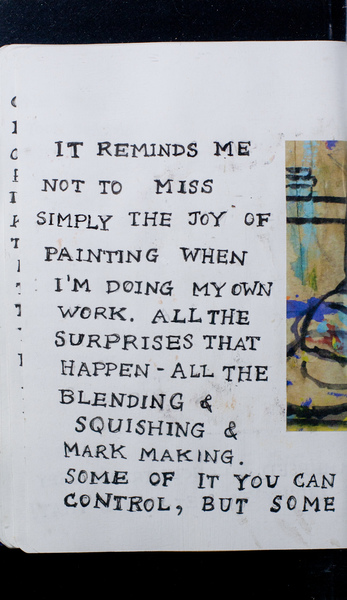 IT REMINDS ME
NOT TO MISS
SIMPLY THE JOY OF
PAINTING WHEN
I'M DOING MY OWN
WORK. ALL THE
SURPRISES THAT
HAPPEN - ALL THE
BLENDING &
SQUISHING &
MARK MAKING.
SOME OF IT YOU CAN
CONTROL, BUT SOME